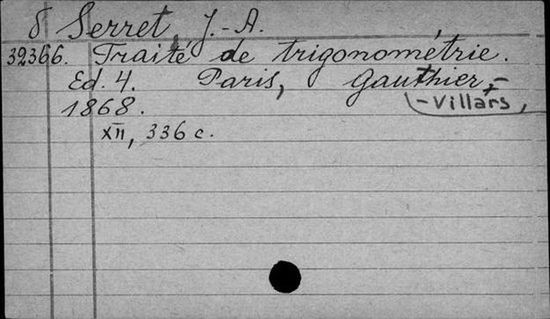 δ Serret, J.-A.
39366. Traité de trigonométrie.
Ed. 4. Paris, Gauthier-
-Villars,
1868.
XII, 336 c.